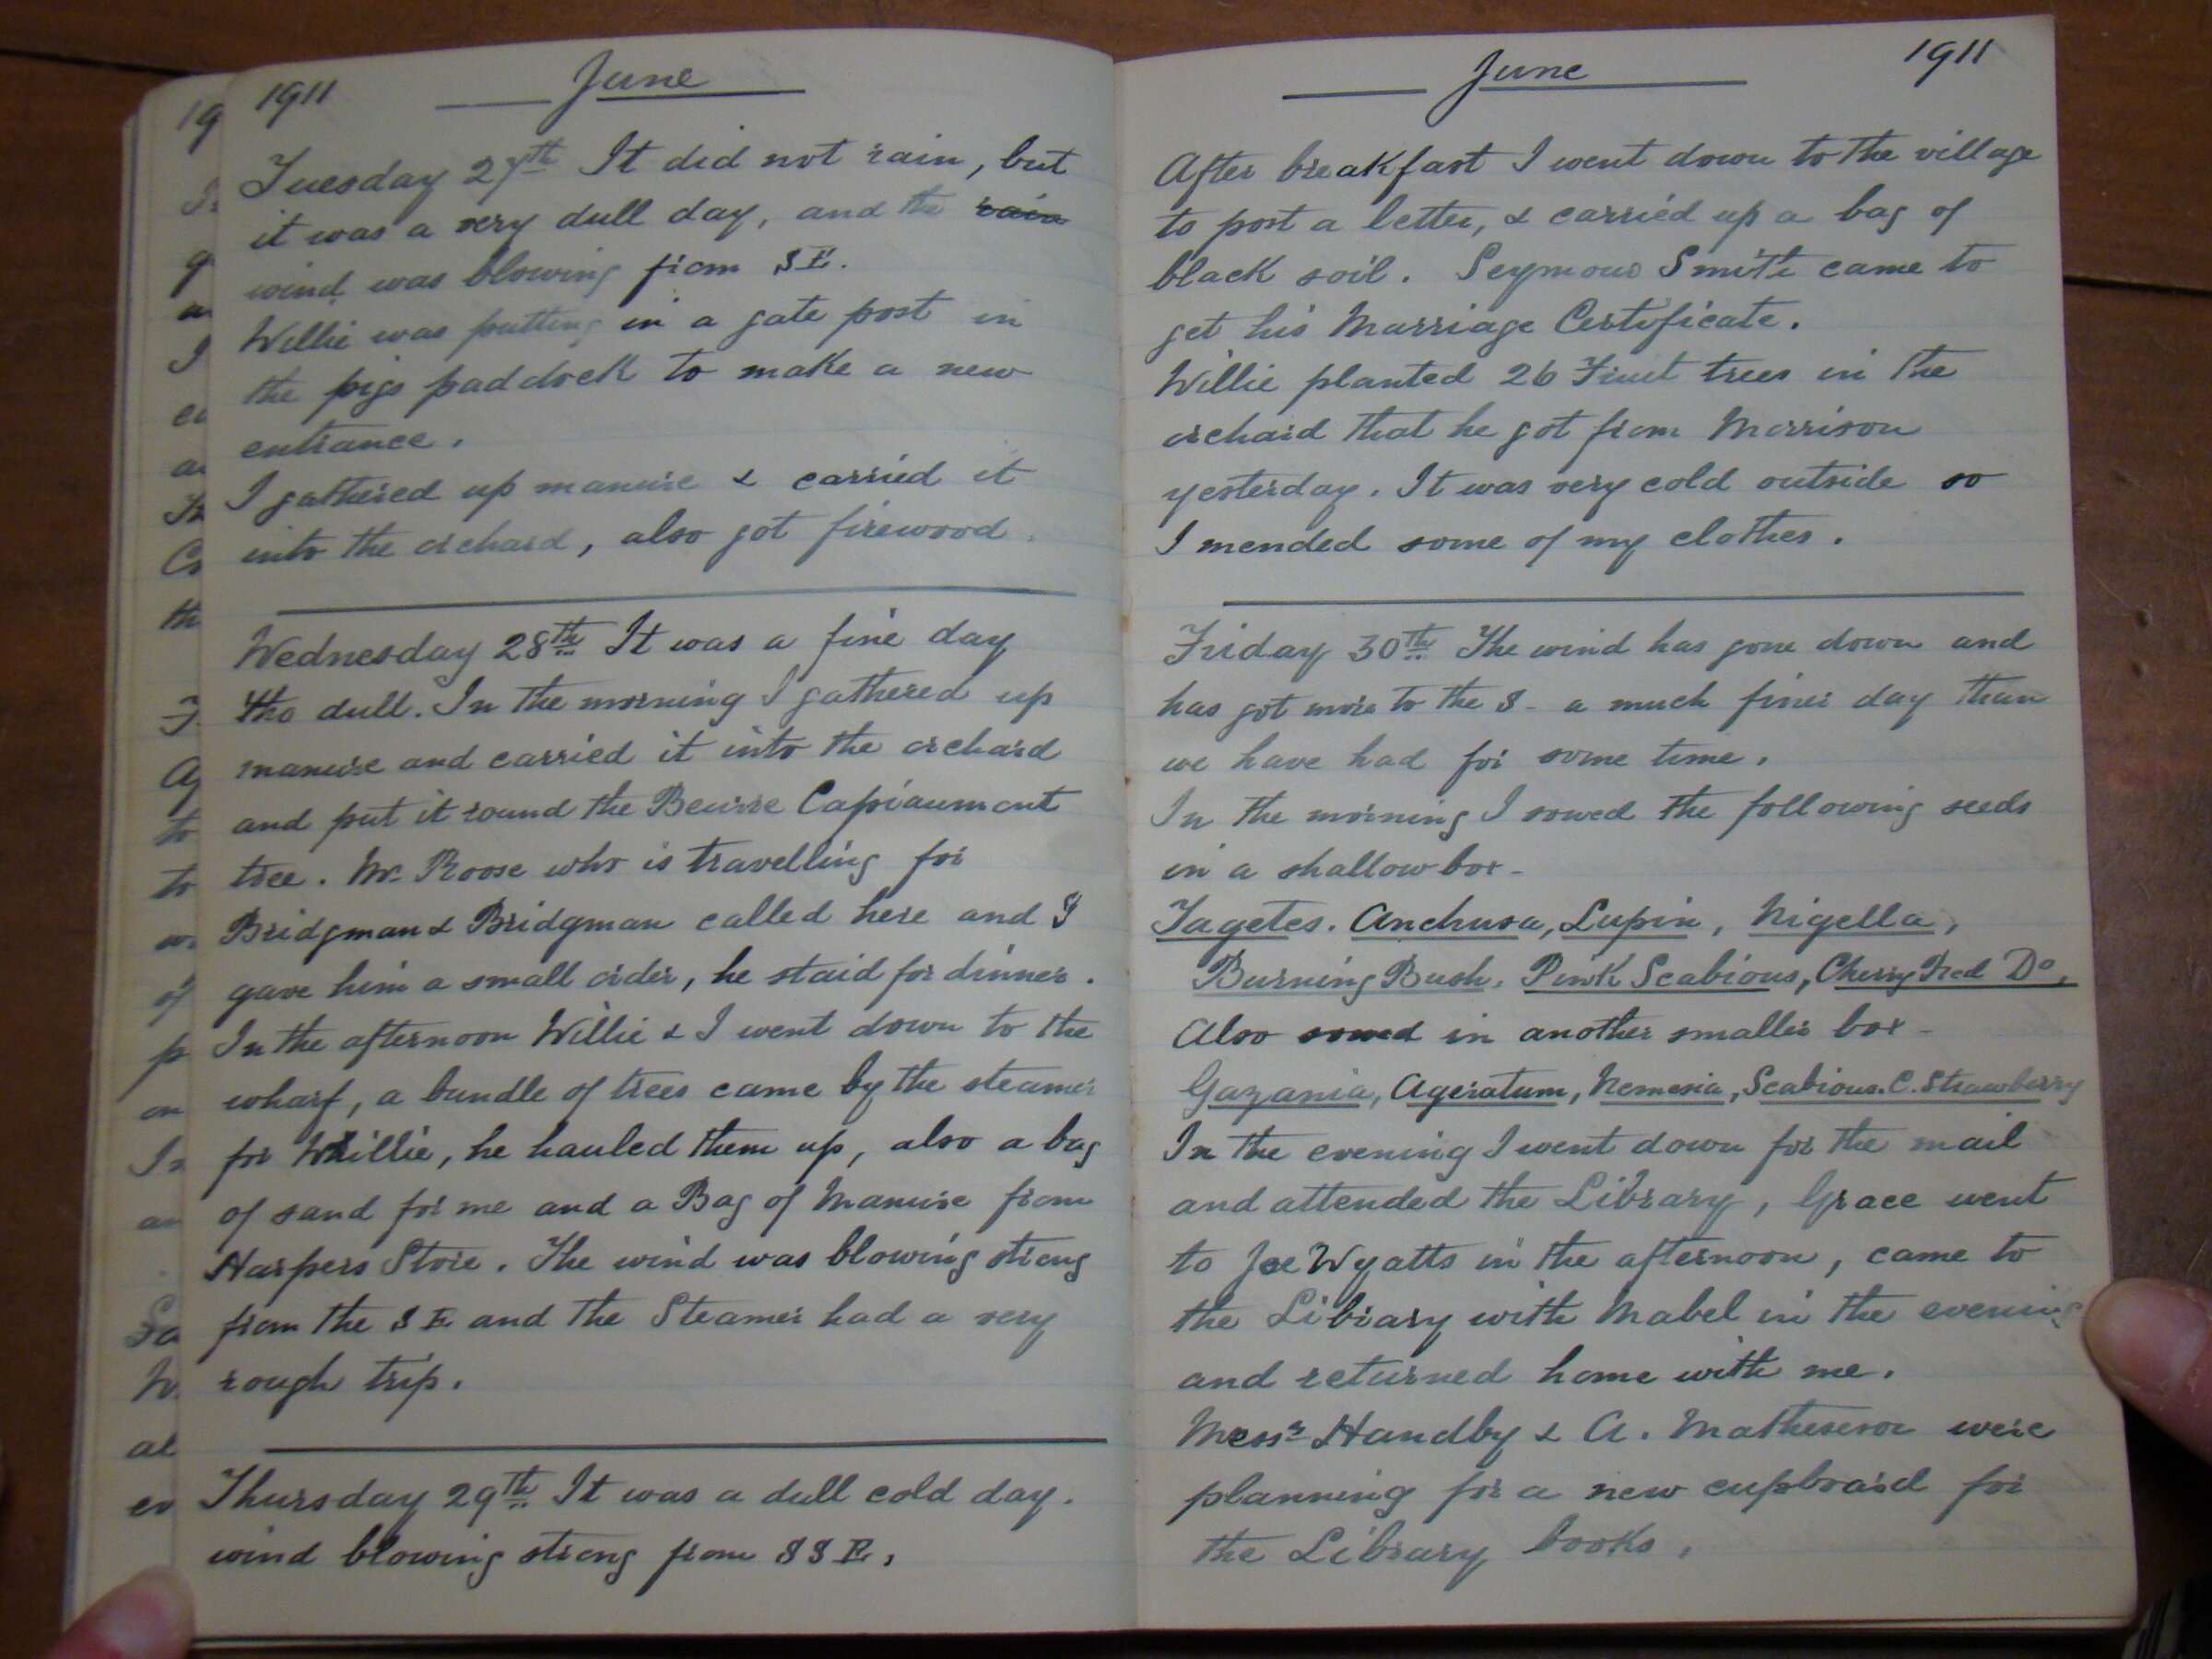 1911 June
Tuesday 27th It did not rain, but
it was a very dull day, and the rain
wind was blowing from SE.
Willie was putting in a gate post in
the pigs paddock to make a new
entrance.
I gathered up manure & carried it
into the orchard, also got firewood.
Wednesday 28th It was a fine day
tho dull. In the morning I gathered up
manure and carried it into the orchard
and put it round the Beurre Capiaumont
tree. Mr. Roose who is travelling for
Bridgman & Bridgman called here and I
gave him a small order, he staid for dinner.
In the afternoon Willie & I went down to the
wharf, a bundle of trees came by the steamer
for Willie, he hauled them up, also a bag
of sand for me and a Bag of Manure from
Harpers Store. The wind was blowing strong
from the SE and the Steamer had a very
rough trip.
Thursday 29th It was a dull cold day.
wind blowing strong from SSE,
June 1911
After breakfast I went down to the village
to post a letter, & carried up a bag of
black soil. Seymour Smith came to
get his Marriage Certificate.
Willie planted 26 Fruit trees in the
orchard that he got from Morrison
yesterday. It was very cold outside so
I mended some of my clothes.
Friday 30th The wind has gone down and
has got more to the S - a much finer day than
we have had for some time.
In the morning I sowed the following seeds
in a shallow box -
Tagetes. Anchusa, Lupin, Nigella,
Burning Bush, Pink Scabious, Cherry Red Do,
Also sowed in another smaller box -
Gazania, Ageratum, Nemesia, Scabious. C. Strawberry
In the evening I went down for the mail
and attended the Library, Grace went
to Joe Wyatts in the afternoon, came to
the Library with Mabel in the evening
and returned home with me.
Messrs Handby & A. Matheson were
planning for a new cupboard for
the Library books.